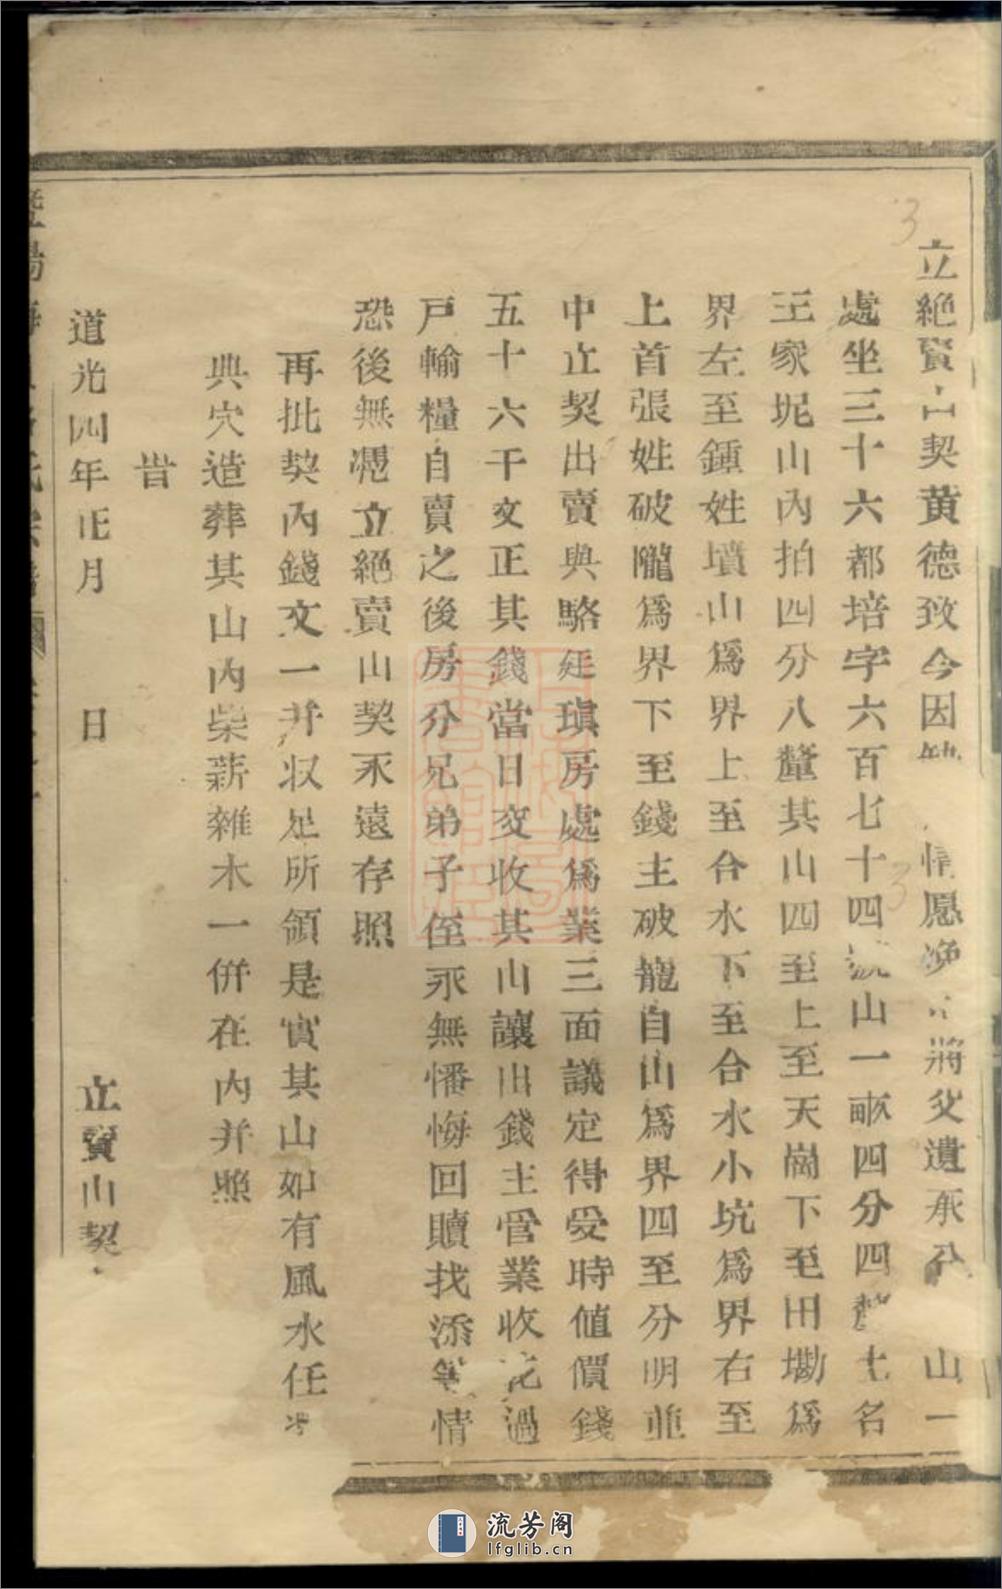 立絕賣山契黄德致今因 情愿 將父遺承 山一
處坐三十六都培字六百七十四號山一畝四分四釐土名
王家坭山內拍四分八釐其山四至上至天崗下至田墈為
界左至鍾姓墳山為界上至合水下至合水小坑為界右至
上首張姓破隴為界下至錢主破龍自山為界四至分明並
中立契出賣與駱廷瑱房處為業三面議定得受時值價錢
五十六千文正其錢當日交收其山讓出錢主管業收花過
戶輸糧自賣之後房分兄弟子侄永無憣悔回贖找添等情
恐後無凴立絕賣山契永遠存照
再批契內錢文一并収足所領是實其山如有風水任
典穴造葬其山內柴薪雜木一併在內并照
旹
道光四年正月 日 立賣山契
3
3
流芳阁
lfglib.cn